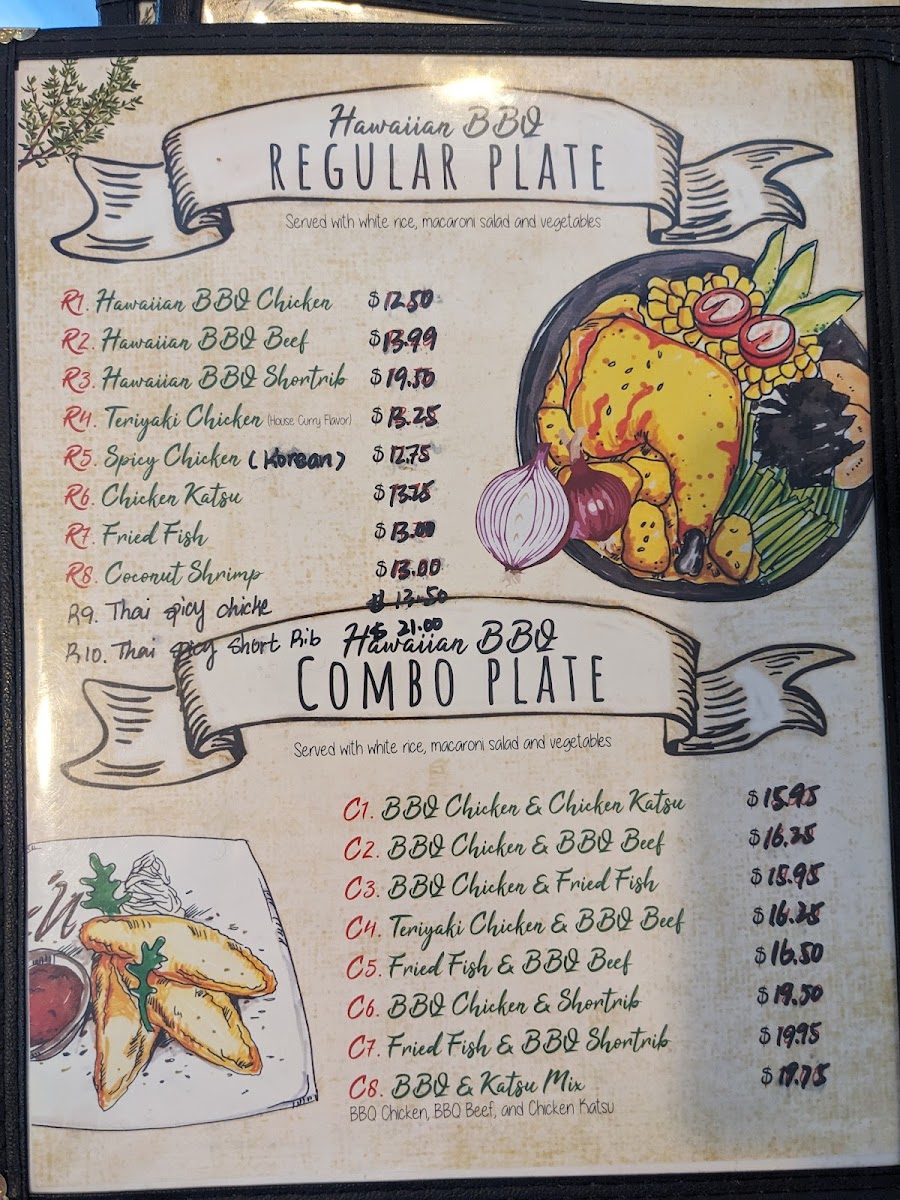 Hawaiian BBQ
REGULAR PLATE
Served with white rice, macaroni salad and vegetables
R1. Hawaiian BBQ Chicken $12.50
R2. Hawaiian BBQ Beef $13.99
R3. Hawaiian BBQ Shortrib $19.50
R4. Teriyaki Chicken (House Curry Flavor) $13.25
R5. Spicy Chicken (Korean) $12.75
R6. Chicken Katsu $
R7. Fried Fish $13.00
R8. Coconut Shrimp $13.00
R9. Thai spicy chicke $13.50
R10. Thai spicy Short Rib $21.00
Hawaiian BBQ
COMBO PLATE
Served with white rice, macaroni salad and vegetables
C1. BBQ Chicken & Chicken Katsu $15.95
C2. BBQ Chicken & BBQ Beef $16.25
C3. BBQ Chicken & Fried Fish $15.95
C4. Teriyaki Chicken & BBQ Beef $16.25
C5. Fried Fish & BBQ Beef $16.50
C6. BBQ Chicken & Shortrib $19.50
C7. Fried Fish & BBQ Shortrib $19.95
C8. BBQ & Katsu Mix $
BBQ Chicken, BBQ Beef, and Chicken Katsu